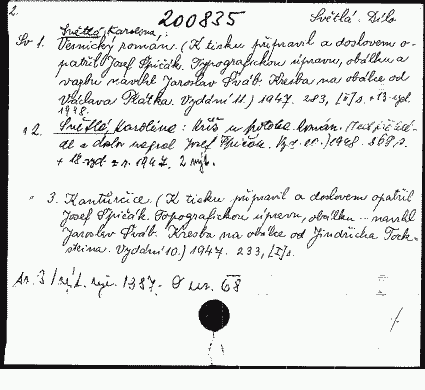 2.
200835
Světlá. Dílo
Světlá, Karolina,
Sv 1. Vesnický román. (K tisku připravil a doslovem o-
patřil Josef Špičák. Typografickou úpravu, obálku a
vazbu navrhl Jaroslav Šváb. Kresba na obálce od
Václava Plátka. Vydání 11.) 1947. 283, [I] s. + 13. vyd.
1948.
" 2. Světlá, Karolina: Kříž u potoka. Román. (Text
a doslov napsal Josef Špičák. Vyd. 1948. 369, s.
+ vyd. z r. 1947. 2 výt.
" 3. Kantůrčice. (K tisku připravil a doslovem opatřil
Josef Špičák. Typografickou úpravu, obálku ... navrhl
Jaroslav Šváb. Kresba na obálce od Jindřicha Tock-
steina. Vydání 10.) 1947. 233, [I] s.
1387. 68